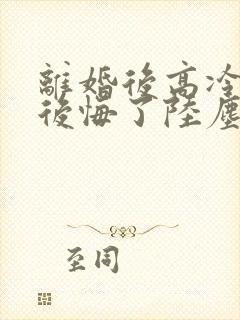 離婚後高冷
後悔了陸塵
至同